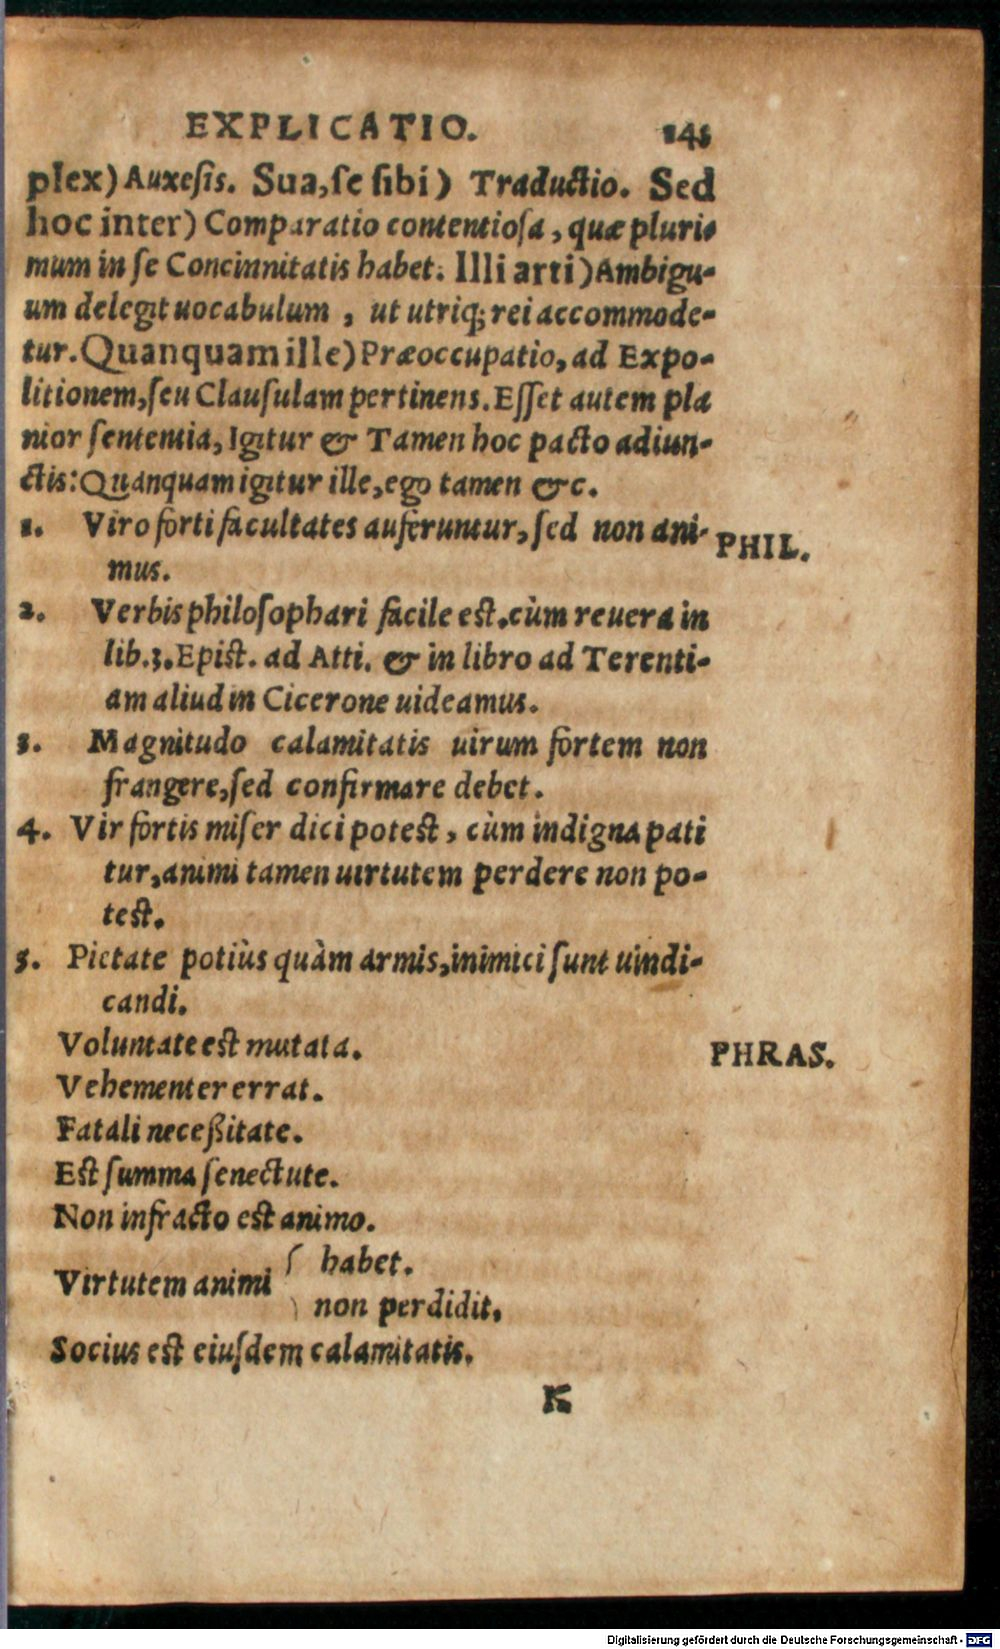 EXPLICATIO. 145
plex) Auxesis. Sua, se sibi) Traductio. Sed
hoc inter) Comparatio contentiosa, quæ pluri⸗
mum in se Concinnitatis habet. Illi arti) Ambigu⸗
um delegit uocabulum, ut utriq; rei accommode⸗
tur. Quanquam ille) Præoccupatio, ad Expo⸗
litionem, seu Clausulam pertinens. Esset autem pla
nior sententia, Igitur & Tamen hoc pacto adiun⸗
ctis: Quanquam igitur ille, ego tamen &c.
1. Viro forti facultates auferuntur, sed non ani- PHIL.
mus.
2. Verbis philosophari facile est. cùm reuera in
lib.3. Epist. ad Atti. & in libro ad Terenti⸗
am aliud in Cicerone uideamus.
3. Magnitudo calamitatis uirum fortem non
frangere, sed confirmare debet.
4. Vir fortis miser dici potest, cùm indigna pati
tur, animi tamen uirtutem perdere non po⸗
test.
5. Pietate potiùs quàm armis, inimici sunt uindi⸗
candi.
Voluntate est mutata. PHRAS.
Vehementer errat.
Fatali neceßitate.
Est summa senectute.
Non infracto est animo.
Virtutem animi { habet.
non perdidit.
Socius est eiusdem calamitatis.
K
Digitalisierung gefördert durch die Deutsche Forschungsgemeinschaft - DFG